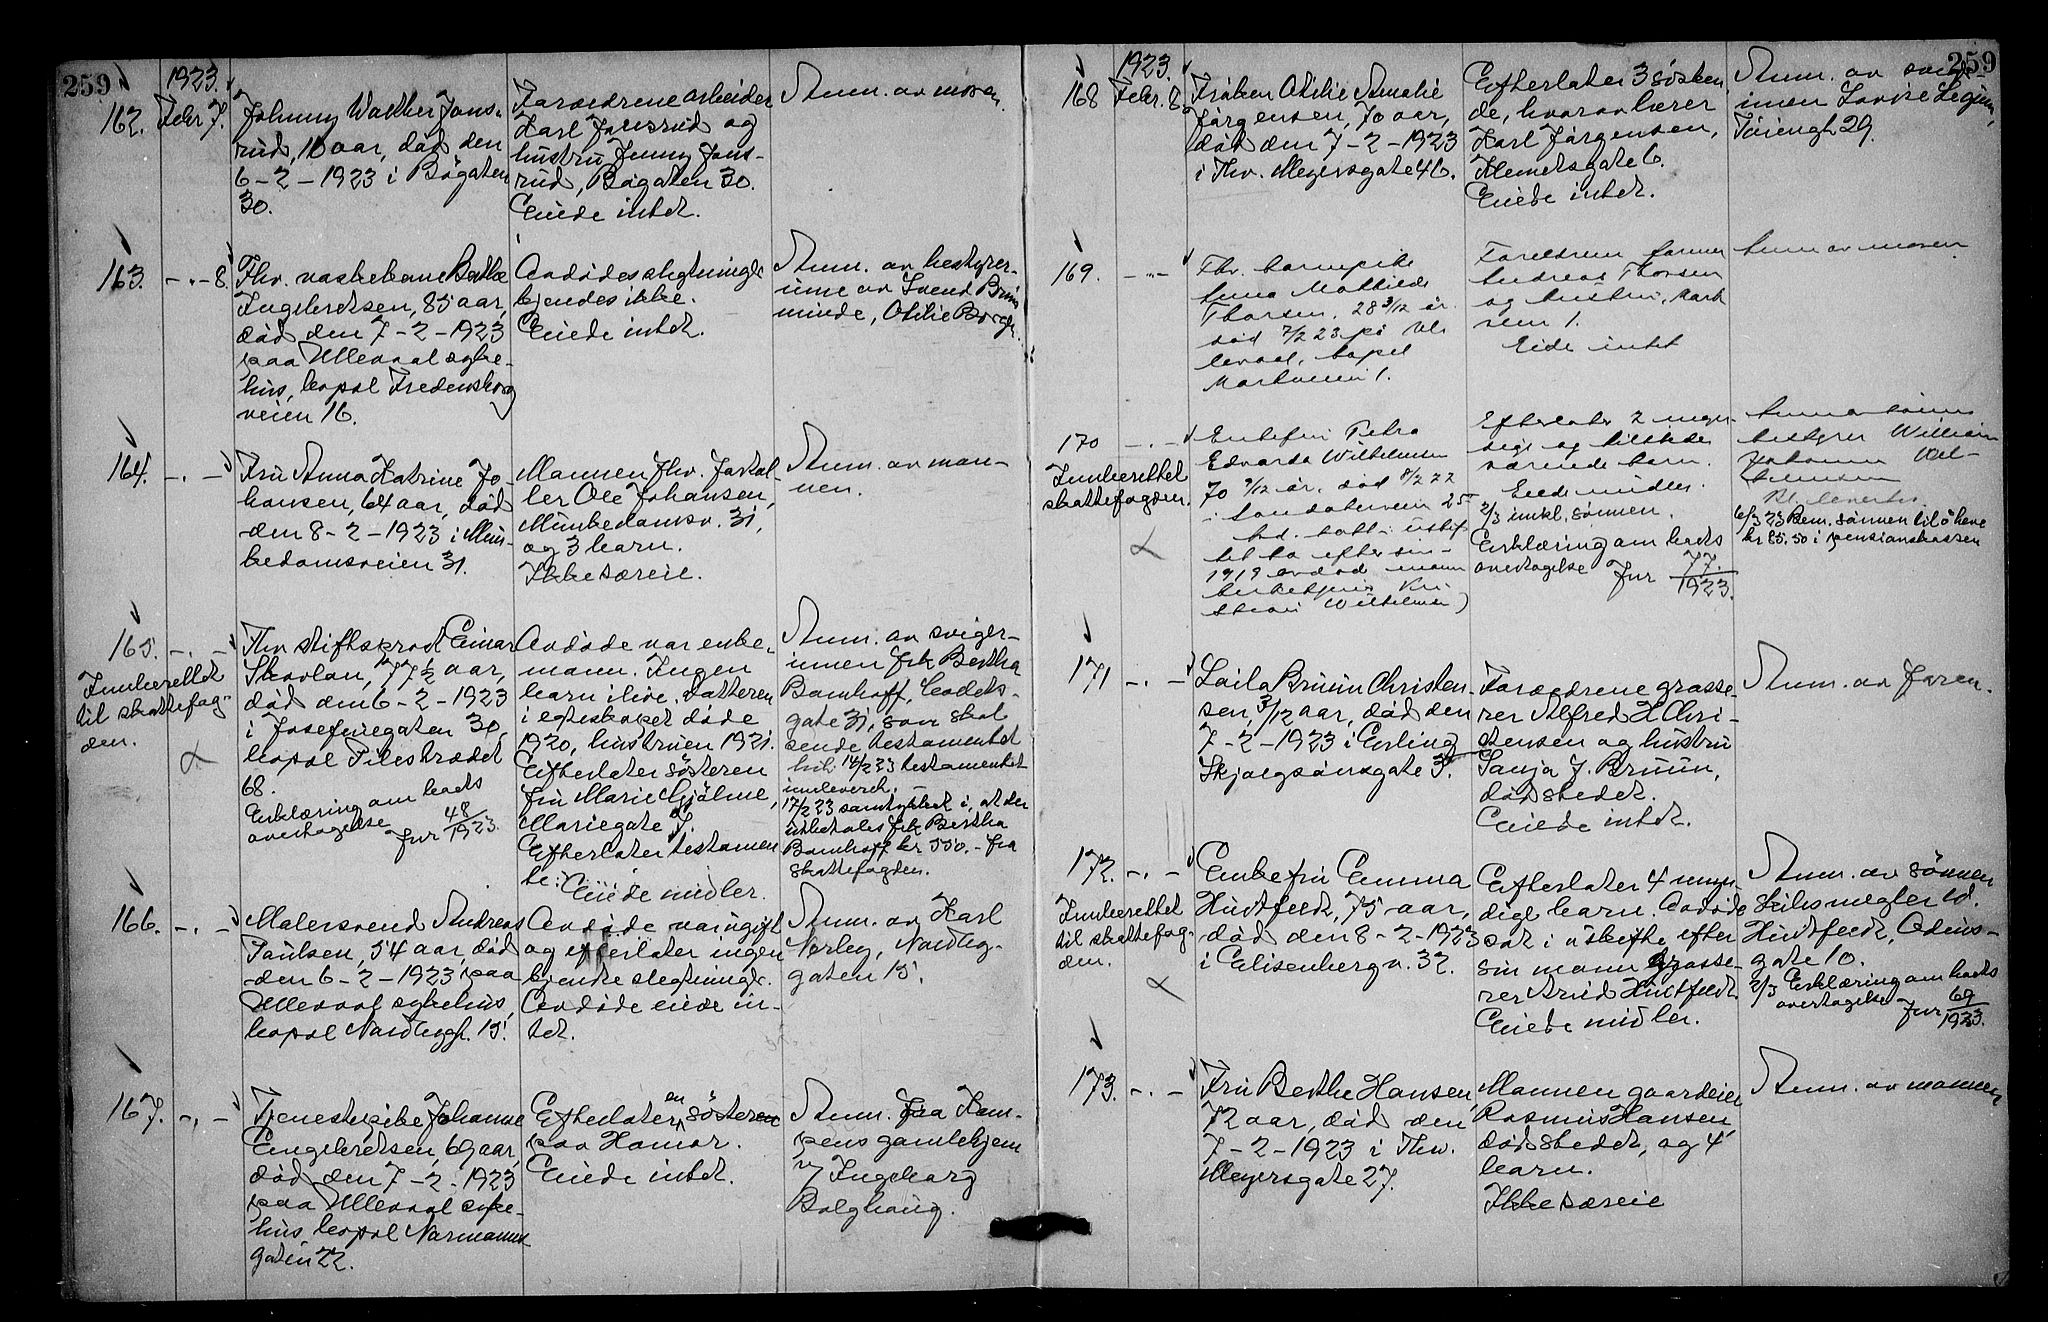 259
1923.
162. Febr. 7.
Johnny Walther Jons-
rud, 10 aar, död den
6-2-1923 i Bögaten
30.
Foraeldrene arbeider
Karl Jonsrud og
hustru Jenny Jons-
rud, Bögaten 30.
Eiede intet.
Anm. av moren.
163. -"- 8.
Fhv. vaskekone Berthe
Ingebretsen, 85 aar,
död den 7-2-1923
paa Ullevaal syke-
hus, bopæl Fredensborg
veien 16.
Avdödes slegtninger
kjendes ikke.
Eiede intet.
Anm. av bestyrer-
inne av Svend
minde, Otilie Borge.
164. -"-
Fru Anna Katrine Jo-
hansen, 64 aar, död
den 8-2-1923 i Mun-
kedamsveien 31.
Mannen fhv.
Ole Johansen,
Munkedamsv. 31,
og 3 barn.
Ikke særeie.
Anm. av man-
nen.
165. -"-
Innberettet
til skattefog-
den.
Fhv stiftsprost Einar
Skavlan, 77 1/2 aar,
död den 6-2-1923
i Josefinegaten 30,
bopæl Pilestrædet
68.
Erklæring om boets
overtagelse
Jnr 48/1923.
Avdöde var enke-
mann. Ingen
barn i live. Datteren
i egteskapet döde
1920, hustruen 1921.
Efterlater sösteren
fru Marie Hjälme,
Mariegate
Efterlater testamen
te. Eiede midler.
Anm. av sviger-
innen frk Bertha
Bomhoff, Eckers-
gate 31, som skal
sende testamentet
14/2 23 testamentet
innleveret.
17/2 23 samtykket i, at der
utbetales frk Bertha
Bomhoff kr 550.- fra
skattefogden.
166. -"-
Malersvend Andreas
Paulsen, 54 aar, död
den 6-2-1923 paa
Ullevaal sykehus,
bopæl Nordbygt. 15.
Avdöde var ugift
og efterlater ingen
kjendte slegtninger.
Avdöde eiede in-
tet.
Anm. av Karl
Norby, Nordby-
gaten 15.
167. -"-
Tjenestepike Johanne
Engebretsen, 69 aar,
död den 7-2-1923
paa Ullevaal syke-
hus, bopæl Normanns
gaten 22.
Efterlater en söster
paa Hamar.
Eiede intet.
Anm. fra Kam-
pens gamlehjem
v/ Ingeborg
Bolghaug.
259
1923.
168 Febr. 8
Fröken Otilie Amalie
Jörgensen, 70 aar,
död den 7-2-1923
i Thv. Meyersgate 46.
Efterlater 3 sösken
de, hvorav bror
Karl Jörgensen,
Klemetsgate 6.
Eiede intet.
Anm. av
innen Lovise
Töiengt 29.
169. -"-
Fhv. barnepike
Anna Mathilde
Thorsen, 28 3/12 år
död 7/2 23 på Ul-
levaal, bopel
Markveien 1.
Foreldrene former
Andreas Thorsen
og hustru, Mark
veien 1.
Eide intet
Anm av moren
170 -"-
Innberettet
skattefogden.
Enkefru Petra
Edvarda Wilhelmsen
70 9/12 år, död 8/2 22
i Sandakerveien 25
hd. satt i uskif
tet bo efter sin i
1919 avdöde mann
Kri
stian Wilhelmsen)
Efterlater 2 myn
dige og tilstede
værende barn.
Eiede midler.
2/3 innkl. sönnen.
Erklæring om boets
overtagelse Jnr 77./1923.
Anm av sönn
bestyrer William
Johannes Wil-
helmsen
6/3 23 Bem. sönnen til å heve
kr 85.50 i pensionskassen
171 -"-
Laila Bruun Christen-
sen, 3/12 aar, död den
7-2-1923 i Erling
Skjalgsönsgate 3.
Foraeldrene grosse-
rer Alfred H Chri-
stensen og hustru
Sanja J. Bruun,
dödstedet.
Eiede intet.
Anm. av faren.
172. -"-
Innberettet
til skattefog-
den.
Enkefru Emma
Huitfeldt, 75 aar,
död den 8-2-1923
i Elisenberg v. 32.
Efterlater 4 myn-
dige barn. Avdöde
sat i uskifte efter
sin mann grosse-
rer Arvid Huitfeldt.
Eiede midler.
Anm. av sönnen
skibsmegler
Huitfeldt, Odins-
gate 10.
2/3 Erklæring om boets
overtagelse
Jnr 69/1923.
173. -"-
Fru Berthe Hansen,
72 aar, död den
7-2-1923 i Thv.
Meyersgate 27.
Mannen gaardeier
Rasmus Hansen
dödstedet, og 4
barn.
Ikke særeie
Anm. av mannen